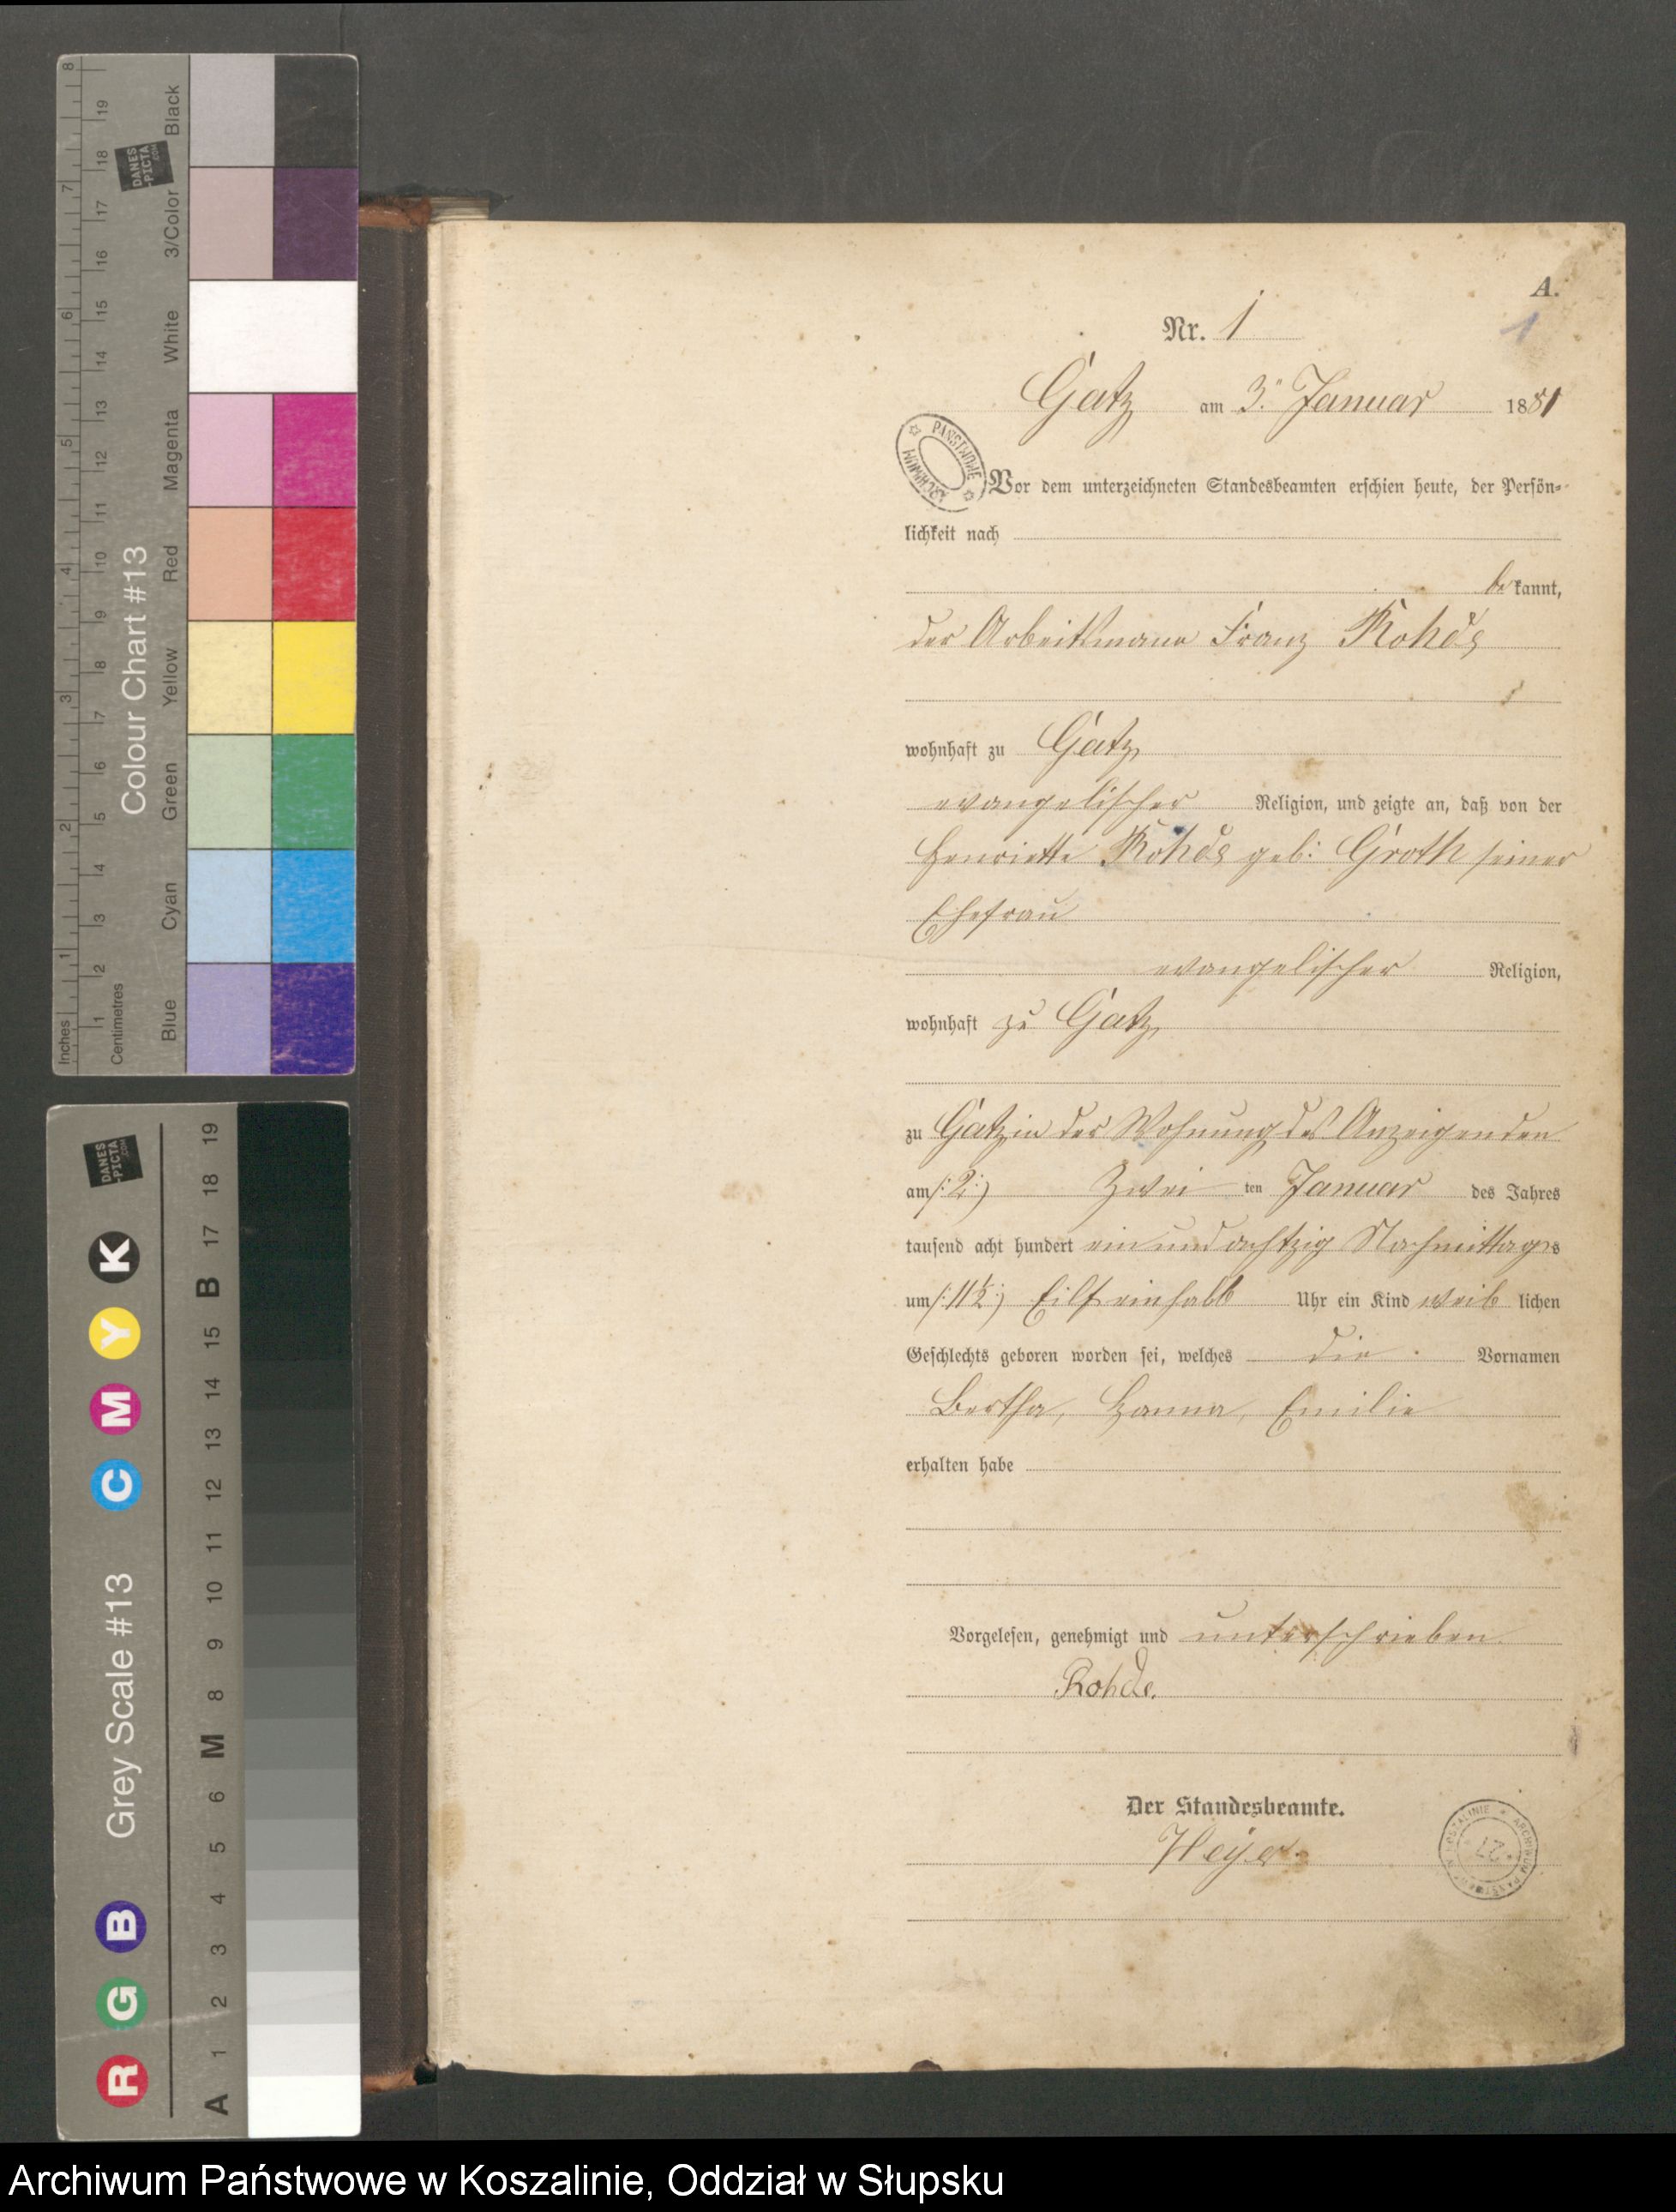 A.
Nr. 1
1
Gatz am 3. Januar 1881
PAŃSTWOWE ARCHIWUM
Vor dem unterzeichneten Standesbeamten erschien heute, der Persön-
lichkeit nach
be kannt,
der Arbeitsmann Franz Rohde
wohnhaft zu Gatz
evangelischer Religion, und zeigte an, daß von der
Henriette Rohde geb: Groth seiner
Ehefrau
evangelischer Religion,
wohnhaft zu Gatz
zu Gatz in der Wohnung des Anzeigenden
am /:2:/ Zwei ten Januar des Jahres
tausend acht hundert ein und achtzig Nachmittags
um /:11½:/ Eilf einhalb Uhr ein Kind weib lichen
Geschlechts geboren worden sei, welches die Vornamen
Bertha, Hanna, Emilie
erhalten habe
Vorgelesen, genehmigt und unterschrieben.
Rohde.
Der Standesbeamte.
Heyer
Inches 1 2 3 4 5 6 7 8
Centimetres 1 2 3 4 5 6 7 8 9 10 11 12 13 14 15 16 17 18 19
Colour Chart #13
Blue Cyan Green Yellow Red Magenta White 3/Color Black
DANES
-PICTA
.COM
Grey Scale #13
R G B C M Y K
A 1 2 3 4 5 6 M 8 9 10 11 12 13 14 15 B 17 18 19
DANES
-PICTA
.COM
Archiwum Państwowe w Koszalinie, Oddział w Słupsku